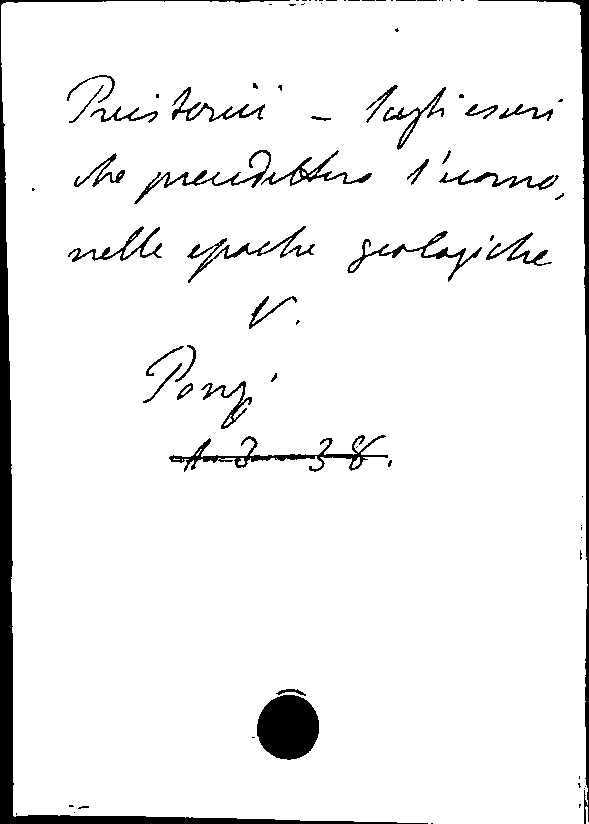 Preistorici - Sugli esseri
che precedettero l'uomo,
nelle epoche geologiche
V.
Ponzi
A 3 38.